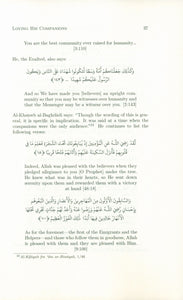 LOVING HIS COMPANIONS 97
You are the best community ever raised for humanity..
[3:110]
He, the Exalted, also says:
وَكَذَلِكَ جَعَلْنَاكُمْ أُمَّةً وَسَطًا لِتَكُونُوا شُهَدَاءَ عَلَى النَّاسِ وَيَكُونَ
الرَّسُولُ عَلَيْكُمْ شَهِيدًا
And so We have made you [believers] an upright commu-
nity so that you may be witnesses over humanity and
that the Messenger may be a witness over you. [2:143]
Al-Khateeb al-Baghdadi says: "Though the wording of this is gene-
ral it is specific in implication. It was said at a time when the
companions were the only audience." He continues to list the
following verses:
لَقَدْ رَضِيَ اللَّهُ عَنِ الْمُؤْمِنِينَ إِذْ يُبَايِعُونَكَ تَحْتَ الشَّجَرَةِ فَعَلِمَ مَا فِي
قُلُوبِهِمْ فَأَنْزَلَ السَّكِينَةَ عَلَيْهِمْ وَأَثَابَهُمْ فَتْحًا قَرِيبًا
Indeed, Allah was pleased with the believers when they
pledged allegiance to you [O Prophet] under the tree.
He knew what was in their hearts, so He sent down
serenity upon them and rewarded them with a victory
at hand [48:18]
وَالسَّابِقُونَ الْأَوَّلُونَ مِنَ الْمُهَاجِرِينَ وَالْأَنْصَارِ وَالَّذِينَ اتَّبَعُوهُمْ
As for the foremost - the first of the Emigrants and the
Helpers - and those who follow them in goodness, Allah
is pleased with them and they are pleased with Him.
[9:100]